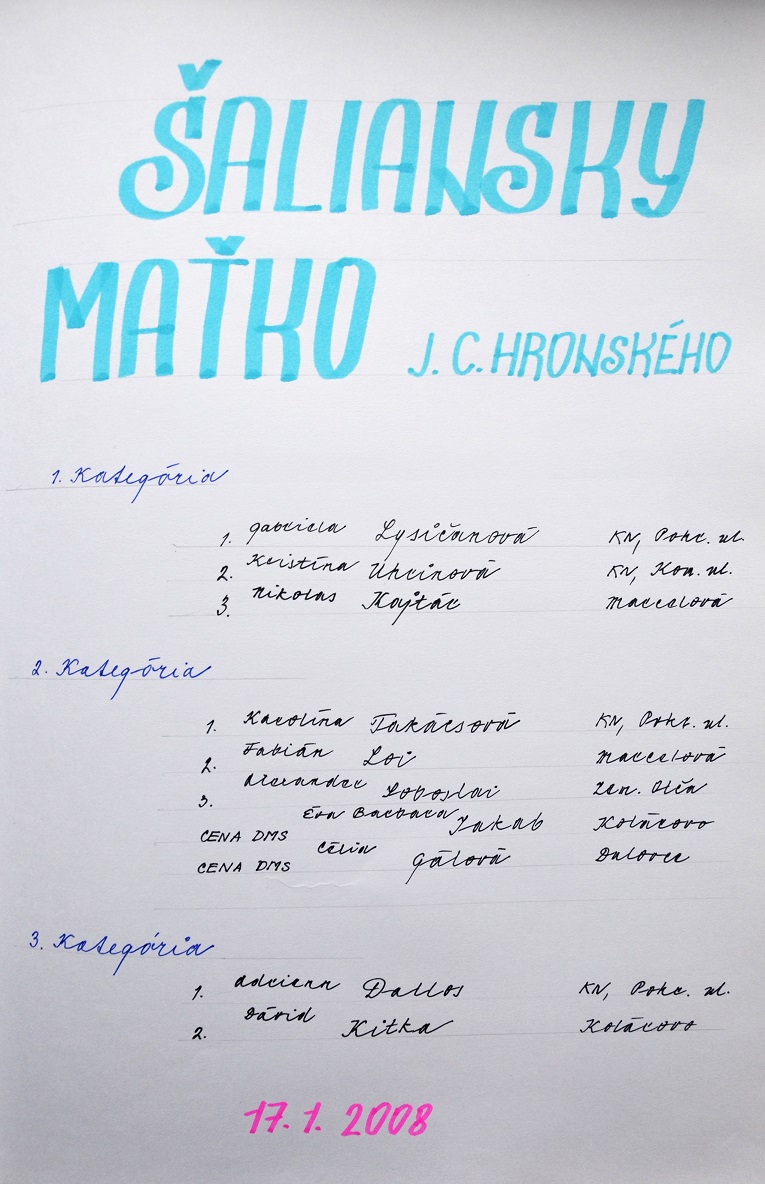 ŠALIANSKY
MAŤKO J. C. HRONSKÉHO
1. Kategória
1. Gabriela Lysičanová KN, Pohr. ul.
2. Kristína Uhrinová KN, Kom. ul.
3. Nikolas Kajtár Marcelová
2. Kategória
1. Karolína Takácsová KN, Pohr. ul.
2. Fabián Loi Marcelová
3. Alexander Soboslai Zem. Olča
CENA DMS Éva Barbara Jakab Kolárovo
CENA DMS Célia Gálová Dulovce
3. Kategória
1. Adrienn Dallos KN, Pohr. ul.
2. Dávid Kitka Kolárovo
17. 1. 2008